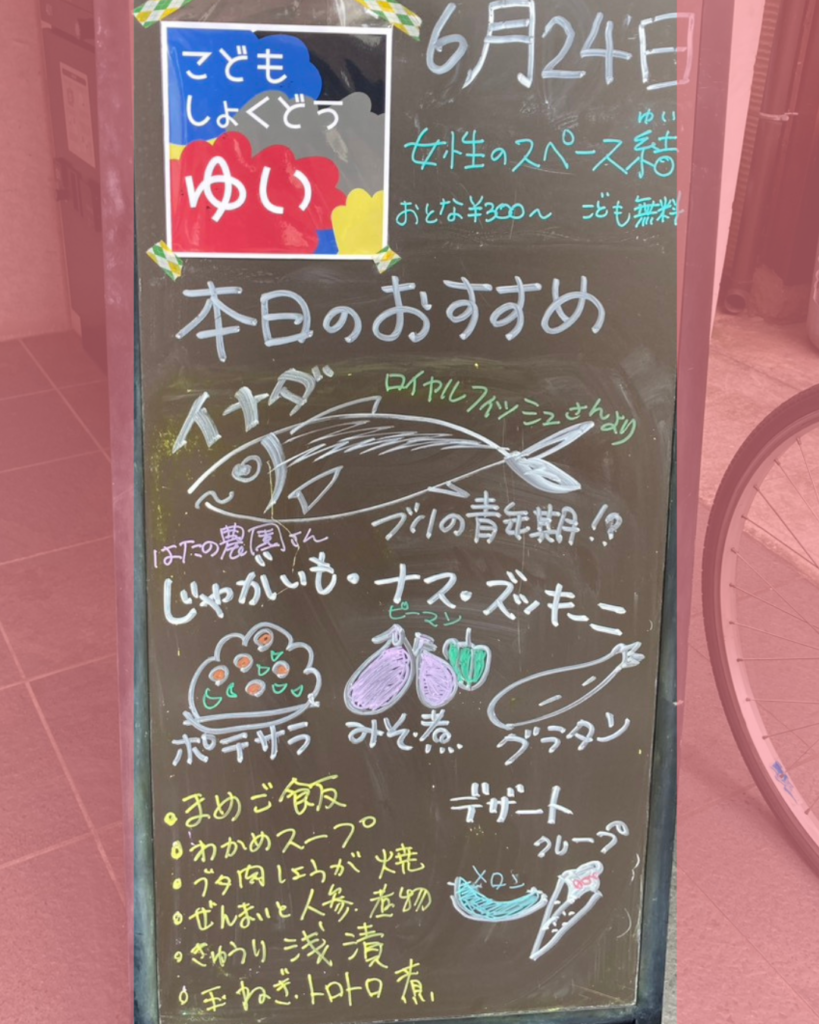 こども
しょくどう
ゆい
6月24日
ゆい
女性のスペース結
おとな¥300〜 こども無料
本日のおすすめ
イナダ
ロイヤルフィッシュさんより
ブリの青年期!?
はたの農園さん
じゃがいも・ナス・ズッキーニ
ピーマン
ポテサラ
みそ煮
グラタン
・まめご飯
・わかめスープ
・ブタ肉しょうが焼
・ぜんまいと人参煮物
・きゅうり浅漬
・玉ねぎトロトロ煮
デザート
クレープ
メロン